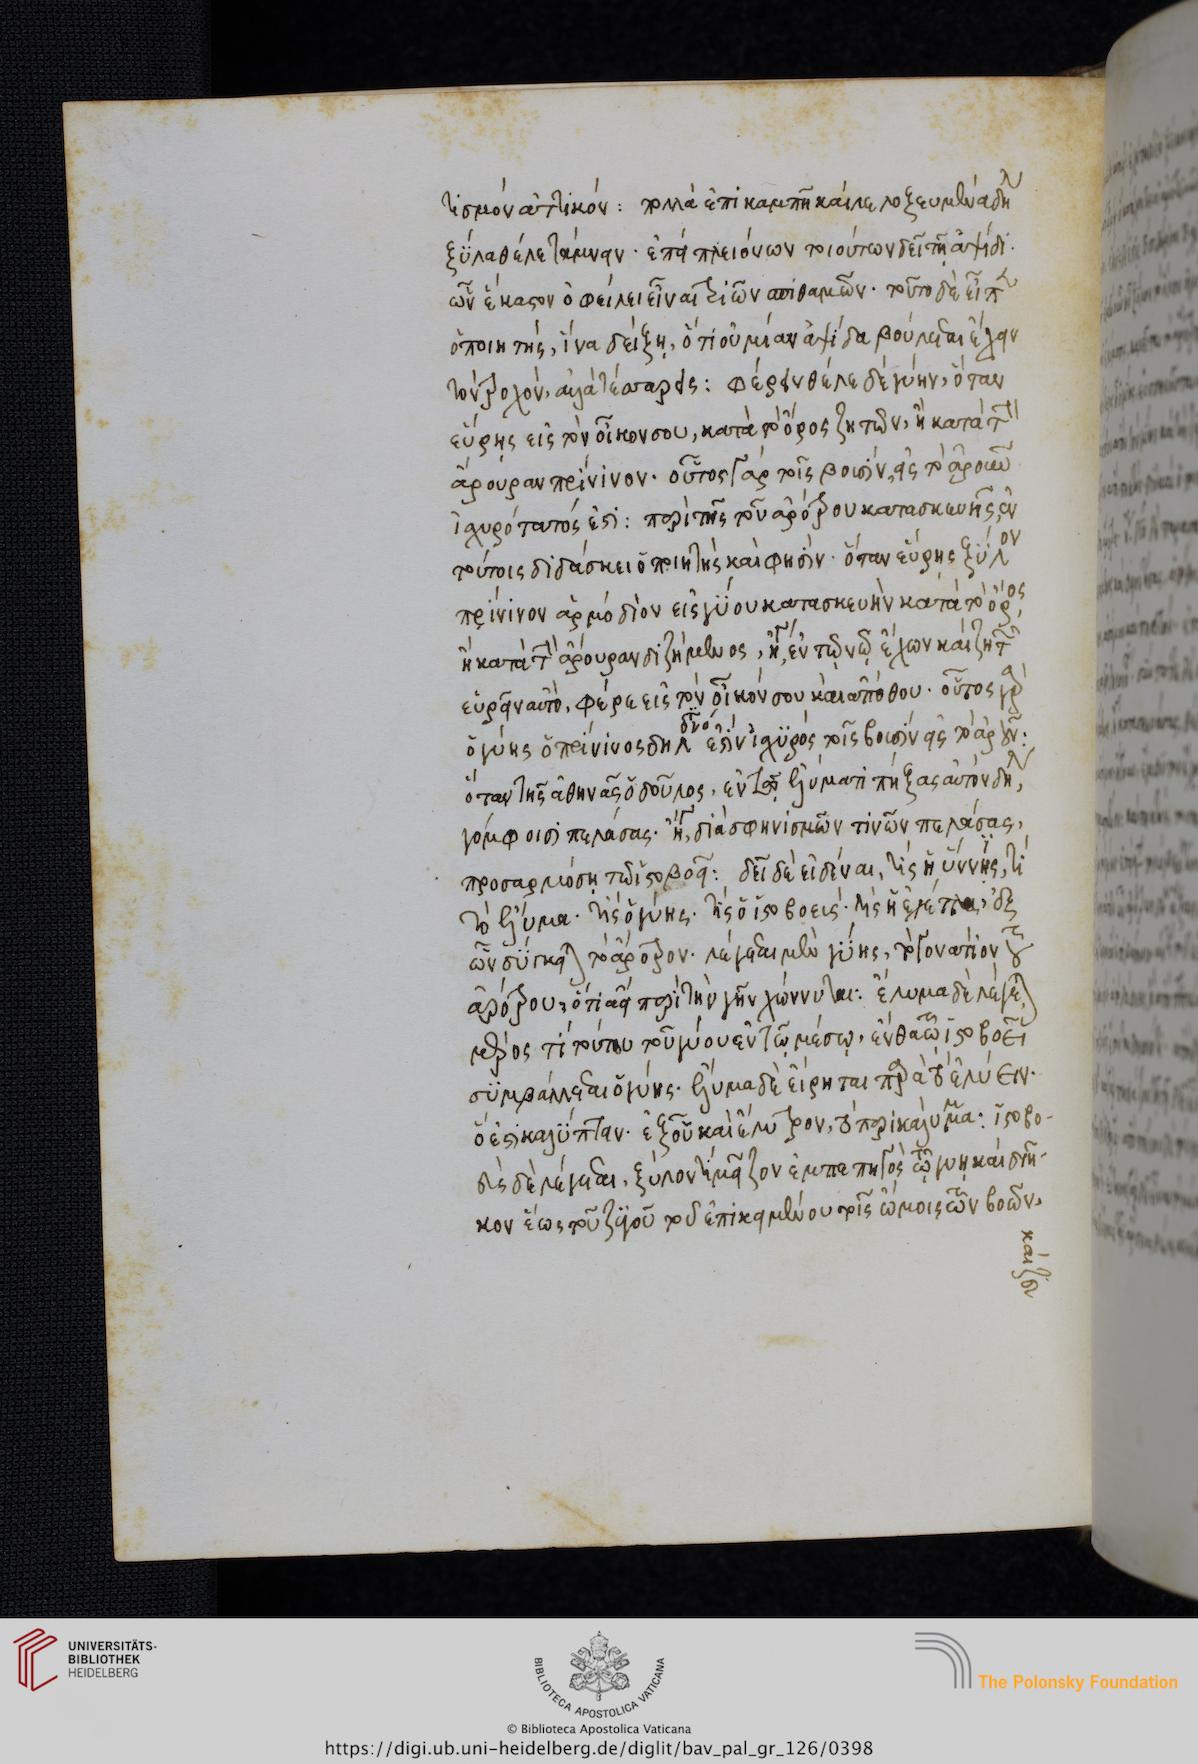 τισμὸν ἀττικόν: πολλὰ ἐπικαμπῆ καὶ λελοξευμένα δηλ
ξύλα θέλε τάμνειν. ἐπεὶ πλειόνων τοιούτων δεῖ τῇ ἀψίδι.
ὧν ἕκαστον ὀφείλει εἶναι τριῶν σπιθαμῶν. τοῦτο δὲ εἶπεν
ὁ ποιητής, ἵνα δείξῃ, ὅτι οὐ μίαν ἀψίδα βούλεται ἔχειν
τὸν τροχόν, ἀλλὰ τέσσαρας: φέρειν θέλε δὲ γύην, ὅταν
εὕρῃς εἰς τὸν οἶκον σου, κατὰ τὸ ὄρος ζητῶν, ἢ κατὰ τὴν
ἄρουραν πρίνινον. οὗτος γὰρ τοῖς βουσὶν εἰς τὸ ἀροῦν
ἰσχυρότατός ἐστι: περὶ τῆς τοῦ ἀρότρου κατασκευῆς ἐν
τούτοις διδάσκει ὁ ποιητὴς καὶ φησίν. ὅταν εὕρῃς ξύλον
πρίνινον ἁρμόδιον εἰς γύου κατασκευὴν κατὰ τὸ ὄρος,
ἢ κατὰ τὴν ἄρουραν διζήμενος, ἤγουν, ἐν τῷ νῷ ἔχων καὶ ζητῶν
εὑρεῖν αὐτό, φέρε εἰς τὸν οἶκόν σου καὶ ἀπόθου. οὗτος γὰρ
ὁ γύης ὁ πρίνινος δηλονότι ἐστὶν ἰσχυρὸς τοῖς βουσὶν εἰς τὸ ἀροῦν:
ὅταν τῆς ἀθηνᾶς ὁ δοῦλος, ἐν τῷ ἐλύματι πήξας αὐτὸν δηλ,
γόμφοισι πελάσας. ἤγουν, διὰ σφηνισμῶν τινῶν πελάσας,
προσαρμόσῃ τῷ ἱστοβοεῖ: δεῖ δὲ εἰδέναι, τίς ἡ ὕννις, τί
τὸ ἔλυμα. τίς ὁ γύης. τίς ὁ ἱστοβοεύς. τίς ἡ ἐχέτλη, ἐξ
ὧν σύγκειται τὸ ἄροτρον. λέγεται μὲν γύης, τὸ γονάτιον τοῦ
ἀρότρου, ὅτι ἀεὶ περὶ τὴν γῆν χώννυται: ἔλυμα δὲ λέγεται
μέρος τι τούτου τοῦ γύου ἐν τῷ μέσῳ, ἔνθα τῷ ἱστοβοεῖ
συμβάλλεται ὁ γύης. ἔλυμα δὲ εἴρηται παρὰ τὸ ἐλύειν.
ὅ ἐστι καλύπτειν. ἐξ οὗ καὶ ἔλυτρον, τὸ περικάλυμμα: ἱστοβο-
εὺς δὲ λέγεται, ξύλον τι μεῖζον ἐμπεπηγὸς τῷ γύῃ καὶ διῆ-
κον ἕως τοῦ ζυγοῦ τοῦ ἐπικειμένου τοῖς ὤμοις τῶν βοῶν,